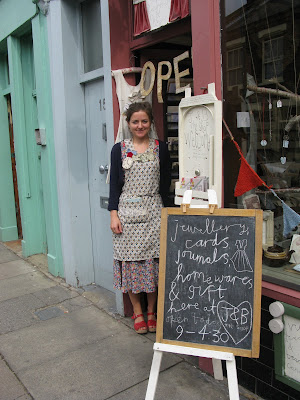 OPE
jewellery,
cards
journals,
homewares
& gift
here at J&B
open today
9-4.30